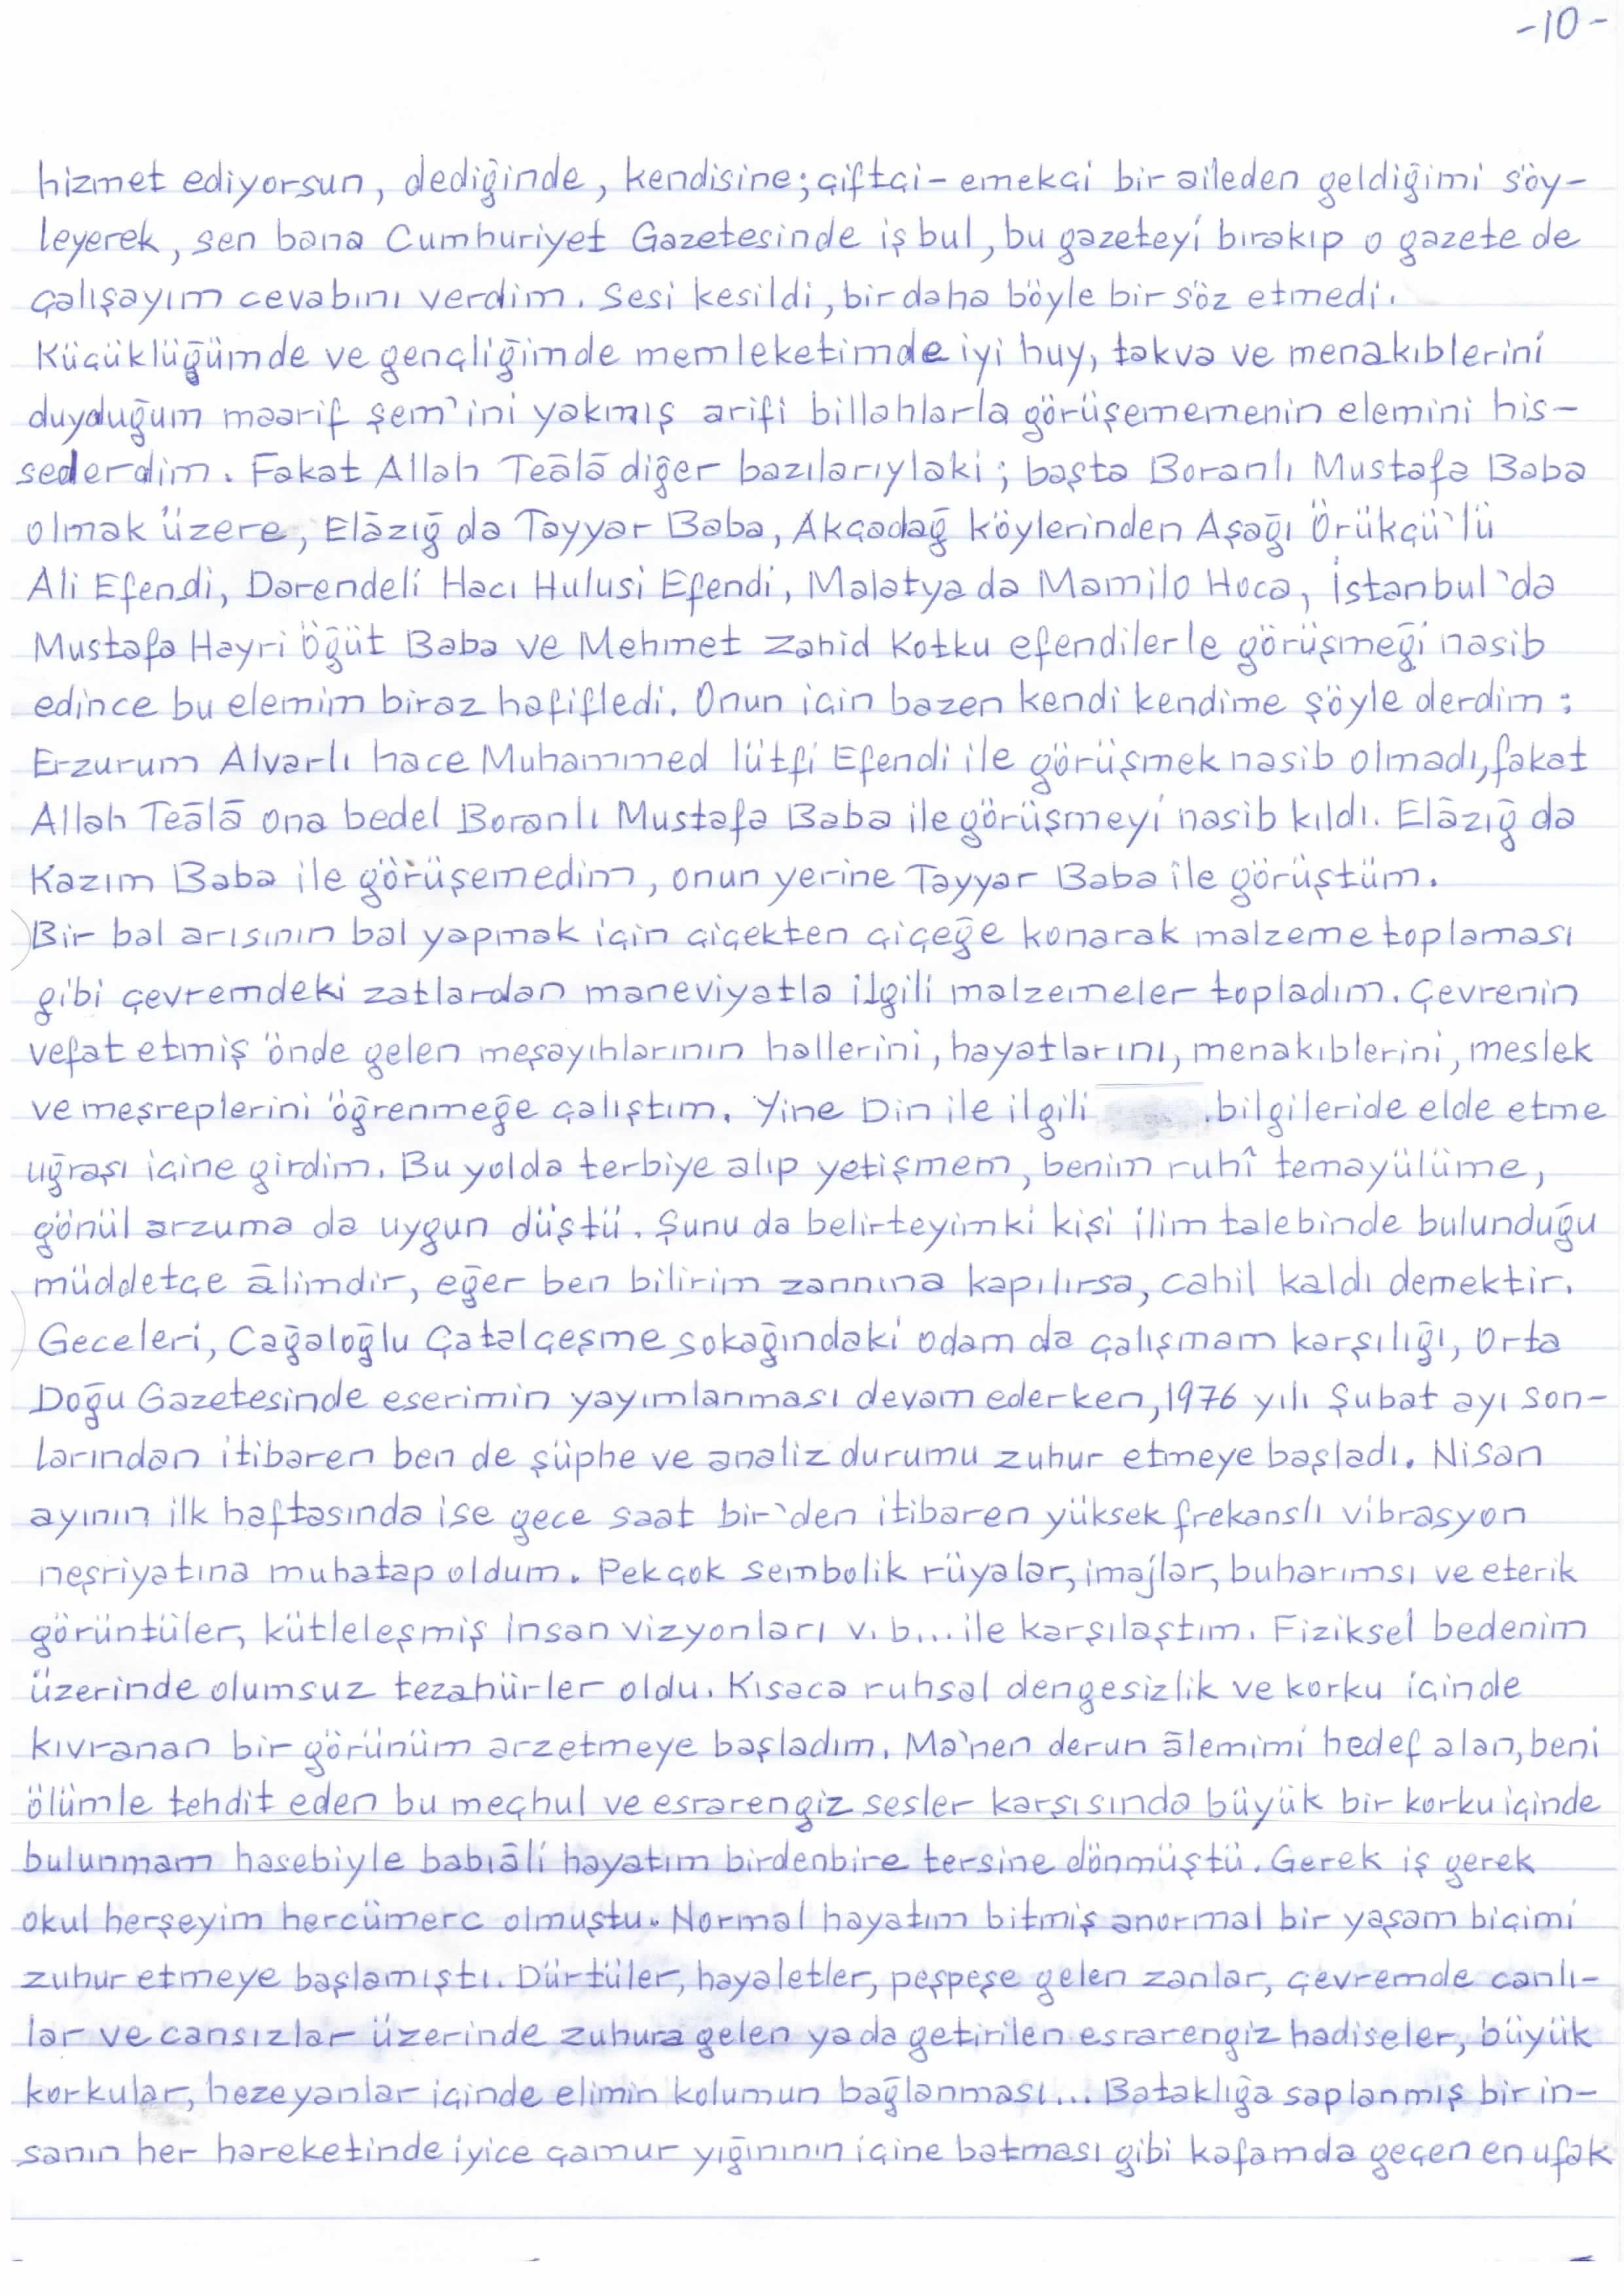 -10-
hizmet ediyorsun, dediğinde, kendisine; çiftçi-emekçi bir aileden geldiğimi söy-
leyerek, sen bana Cumhuriyet Gazetesinde iş bul, bu gazeteyi bırakıp o gazete de
çalışayım cevabını verdim. Sesi kesildi, bir daha böyle bir söz etmedi.
Küçüklüğümde ve gençliğimde memleketimde iyi huy, takva ve menakıblerini
duyduğum maarif şem'ini yakmış arifi billahlarla görüşememenin elemini his-
sederdim. Fakat Allah Teālā diğer bazılarıylaki; başta Boranlı Mustafa Baba
olmak üzere, Elāzığ da Tayyar Baba, Akçadağ köylerinden Aşağı Örükçü'lü
Ali Efendi, Darendeli Hacı Hulusi Efendi, Malatya da Mamilo Hoca, İstanbul'da
Mustafa Hayri Öğüt Baba ve Mehmet Zahid Kotku efendilerle görüşmeği nasib
edince bu elemim biraz hafifledi. Onun için bazen kendi kendime şöyle derdim:
Erzurum Alvarlı hace Muhammed lütfi Efendi ile görüşmek nasib olmadı, fakat
Allah Teālā ona bedel Boranlı Mustafa Baba ile görüşmeyi nasib kıldı. Elāzığ da
Kazım Baba ile görüşemedim, onun yerine Tayyar Baba ile görüştüm.
Bir bal arısının bal yapmak için çiçekten çiçeğe konarak malzeme toplaması
gibi çevremdeki zatlardan maneviyatla ilgili malzemeler topladım. Çevrenin
vefat etmiş önde gelen meşayıhlarının hallerini, hayatlarını, menakıblerini, meslek
ve meşreplerini öğrenmeğe çalıştım. Yine Din ile ilgili .bilgileride elde etme
uğraşı içine girdim. Bu yolda terbiye alıp yetişmem, benim ruhî temayülüme,
gönül arzuma da uygun düştü. Şunu da belirteyimki kişi ilim talebinde bulunduğu
müddetçe ālimdir, eğer ben bilirim zannına kapılırsa, cahil kaldı demektir.
Geceleri, Cağaloğlu Çatalçeşme sokağındaki odam da çalışmam karşılığı, Orta
Doğu Gazetesinde eserimin yayımlanması devam ederken, 1976 yılı Şubat ayı son-
larından itibaren ben de şüphe ve analiz durumu zuhur etmeye başladı. Nisan
ayının ilk haftasında ise gece saat bir'den itibaren yüksek frekanslı vibrasyon
neşriyatına muhatap oldum. Pekçok sembolik rüyalar, imajlar, buharımsı ve eterik
görüntüler, kütleleşmiş insan vizyonları v.b... ile karşılaştım. Fiziksel bedenim
üzerinde olumsuz tezahürler oldu. Kısaca ruhsal dengesizlik ve korku içinde
kıvranan bir görünüm arzetmeye başladım. Ma'nen derun ālemimi hedef alan, beni
ölümle tehdit eden bu meçhul ve esrarengiz sesler karşısında büyük bir korku içinde
bulunmam hasebiyle babıāli hayatım birdenbire tersine dönmüştü. Gerek iş gerek
okul herşeyim hercümerc olmuştu. Normal hayatım bitmiş anormal bir yaşam biçimi
zuhur etmeye başlamıştı. Dürtüler, hayaletler, peşpeşe gelen zanlar, çevremde canlı-
lar ve cansızlar üzerinde zuhura gelen yada getirilen esrarengiz hadiseler, büyük
korkular, hezeyanlar içinde elimin kolumun bağlanması... Bataklığa saplanmış bir in-
sanın her hareketinde iyice çamur yığınının içine batması gibi kafamda geçen en ufak